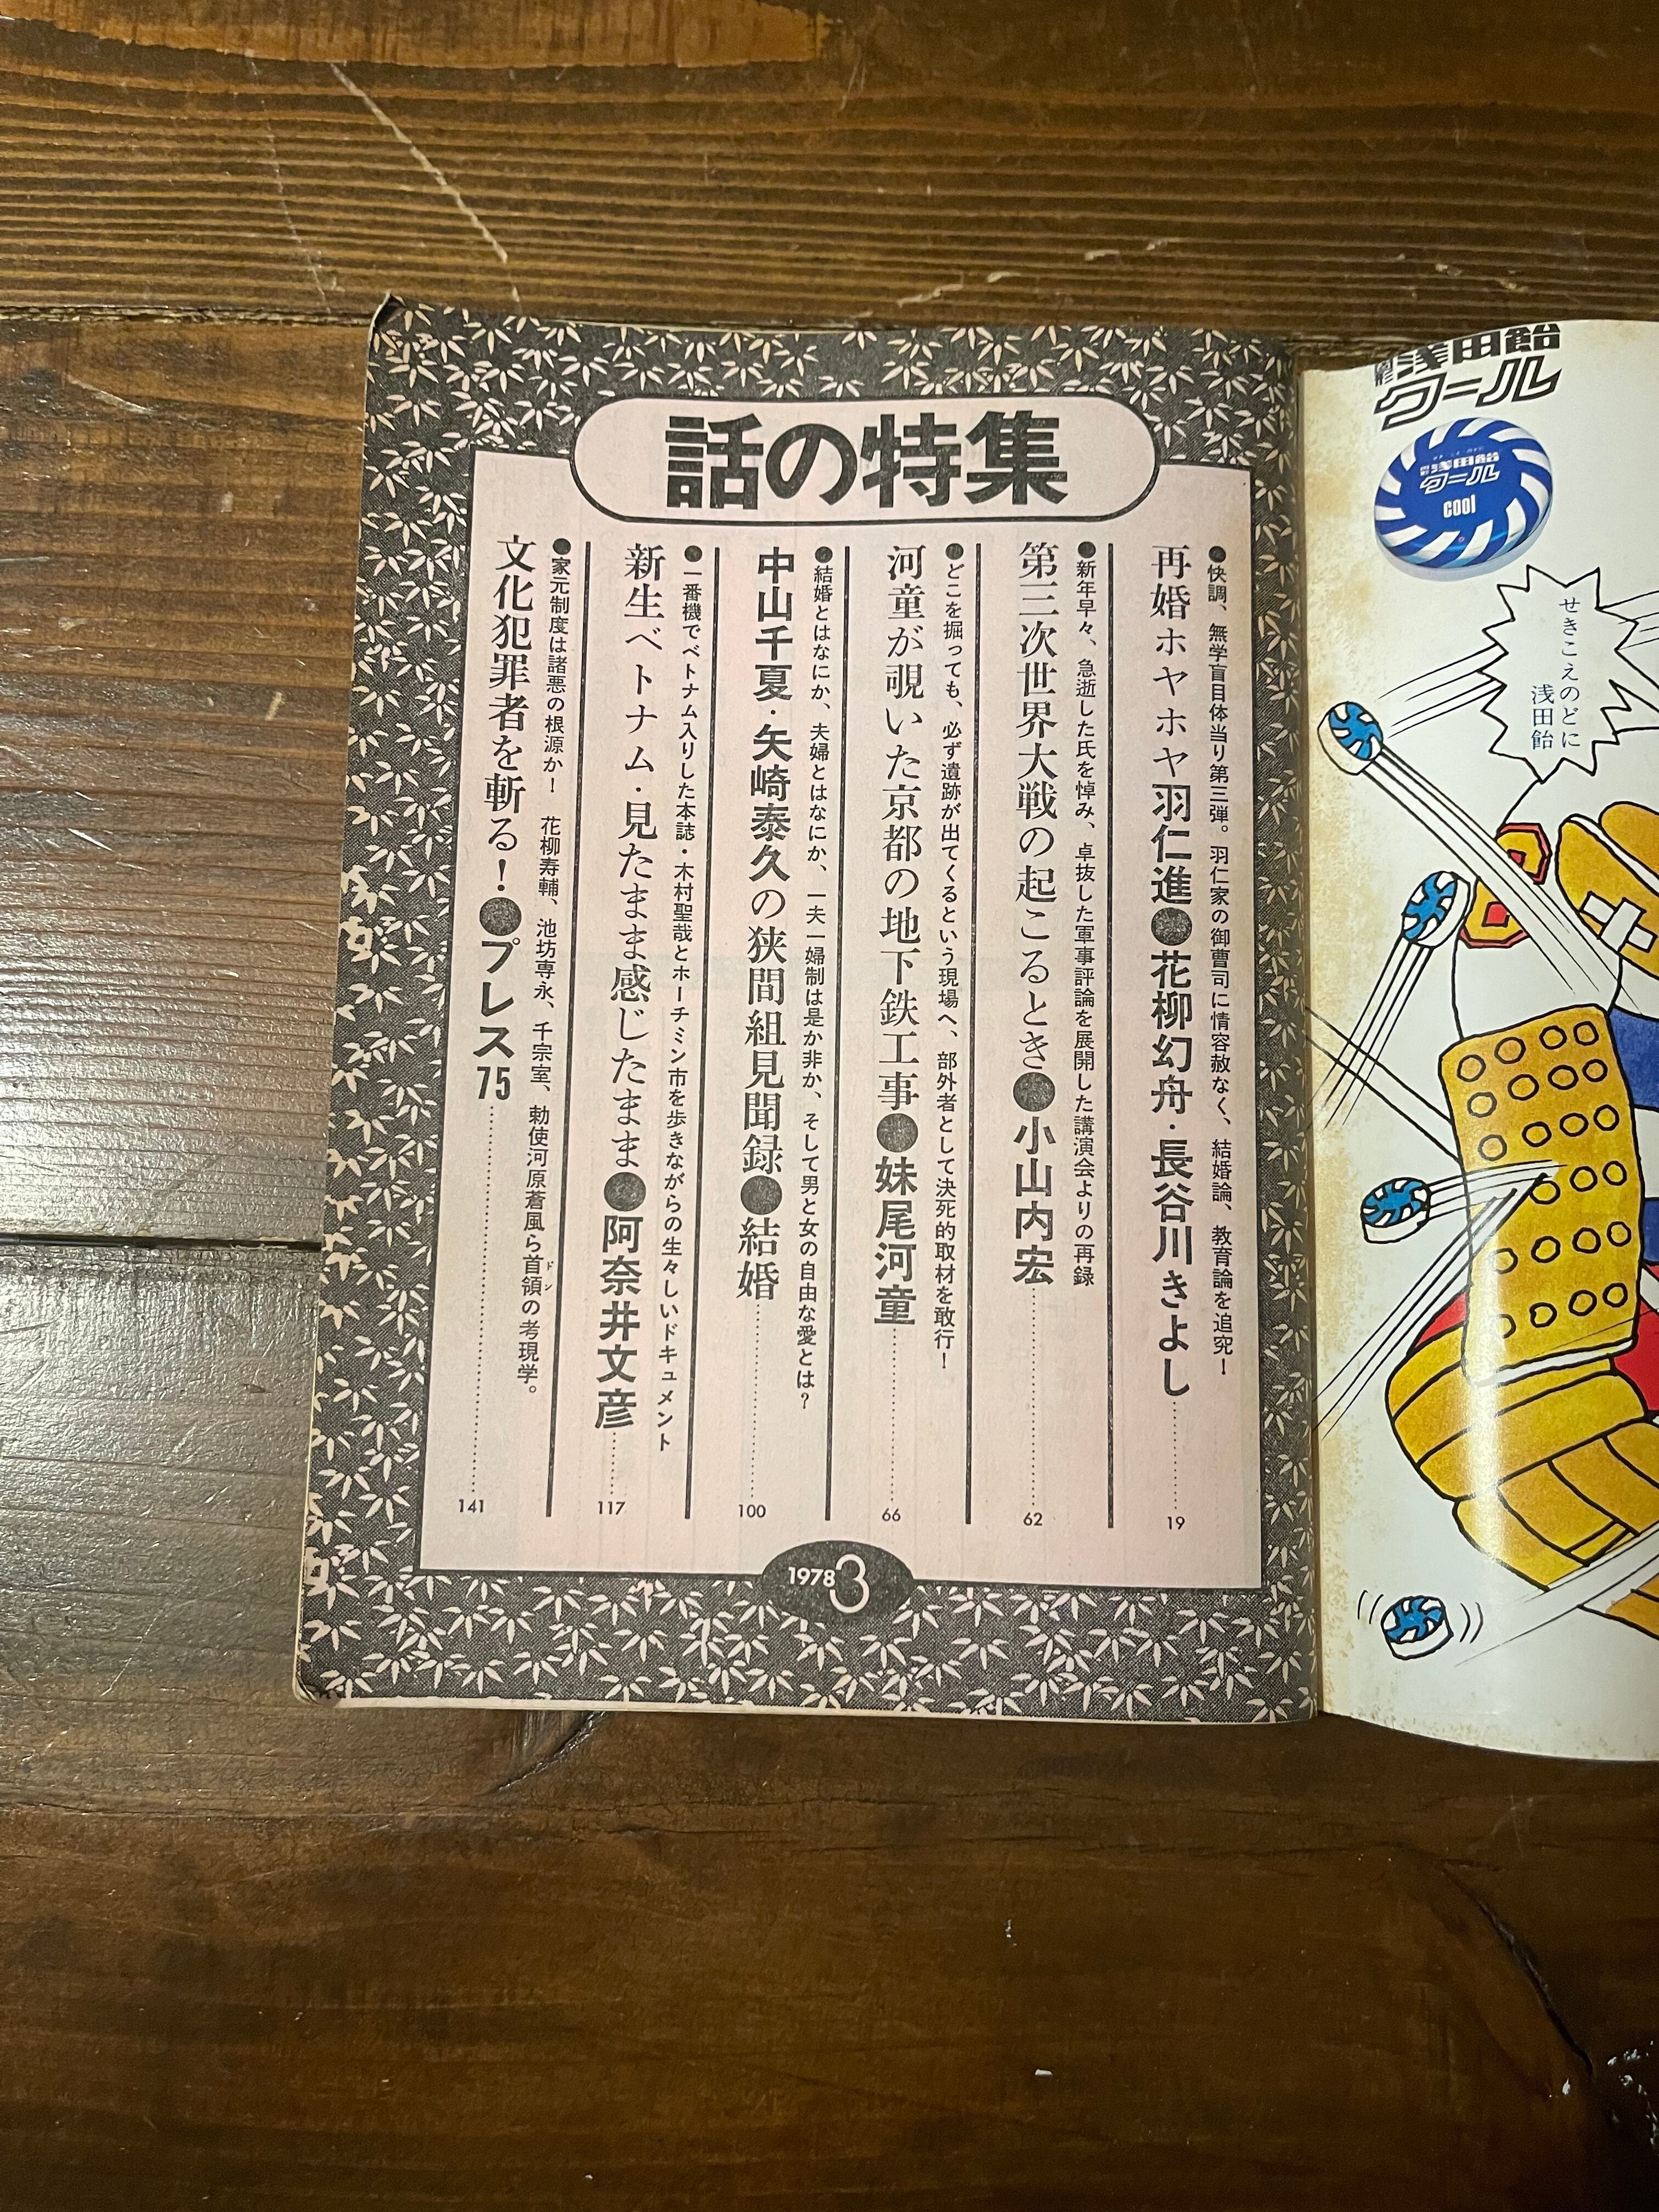 話の特集
●快調、無学盲目体当り第三弾。羽仁家の御曹司に情容赦なく、結婚論、教育論を追究！
再婚ホヤホヤ羽仁進●花柳幻舟・長谷川きよし……19
●新年早々、急逝した氏を悼み、卓抜した軍事評論を展開した講演会よりの再録
第三次世界大戦の起こるとき●小山内宏……62
●どこを掘っても、必ず遺跡が出てくるという現場へ、部外者として決死的取材を敢行！
河童が覗いた京都の地下鉄工事●妹尾河童……66
●結婚とはなにか、夫婦とはなにか、一夫一婦制は是か非か、そして男と女の自由な愛とは？
中山千夏・矢崎泰久の狭間組見聞録●結婚……100
●一番機でベトナム入りした本誌・木村聖哉とホーチミン市を歩きながらの生々しいドキュメント
新生ベトナム・見たまま感じたまま●阿奈井文彦……117
●家元制度は諸悪の根源か！　花柳寿輔、池坊専永、千宗室、勅使河原蒼風ら首領の考現学。
ドン
文化犯罪者を斬る！●プレス75……141
1978 3
浅田飴
クール
浅田飴
クール
cool
せきこえのどに
浅田飴